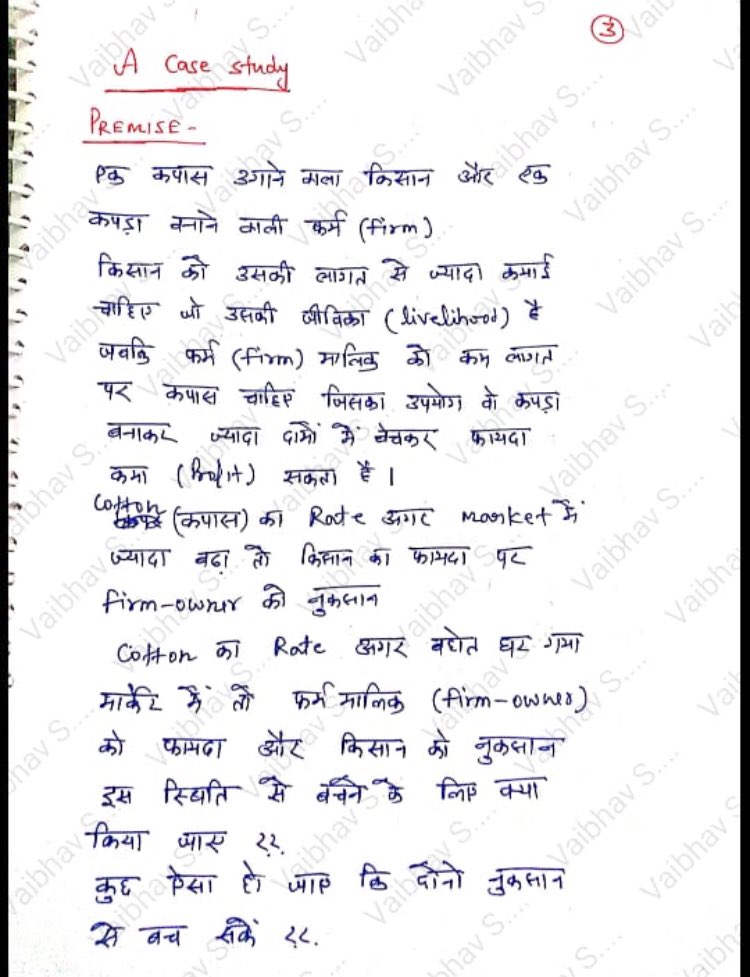 ③
A Case study
PREMISE -
एक कपास उगाने वाला किसान और एक
कपड़ा बनाने वाली फर्म (firm)
किसान को उसकी लागत से ज्यादा कमाई
चाहिए जो उसकी जीविका (livelihood) है
जबकि फर्म (firm) मालिक को कम लागत
पर कपास चाहिए जिसका उपयोग वो कपड़ा
बनाकर ज्यादा दामों में बेचकर फायदा
कमा (Profit) सकता है।
Cotton
(कपास) का Rate अगर market में
ज्यादा बढ़ा तो किसान का फायदा पर
firm-owner को नुकसान
Cotton का Rate अगर बहोत घट गया
मार्केट में तो फर्म मालिक (firm-owner)
को फायदा और किसान को नुकसान
इस स्थिति से बचने के लिए क्या
किया जाए ??
कुछ ऐसा हो जाए कि दोनो नुकसान
से बच सकें ??.
Vaibhav S....